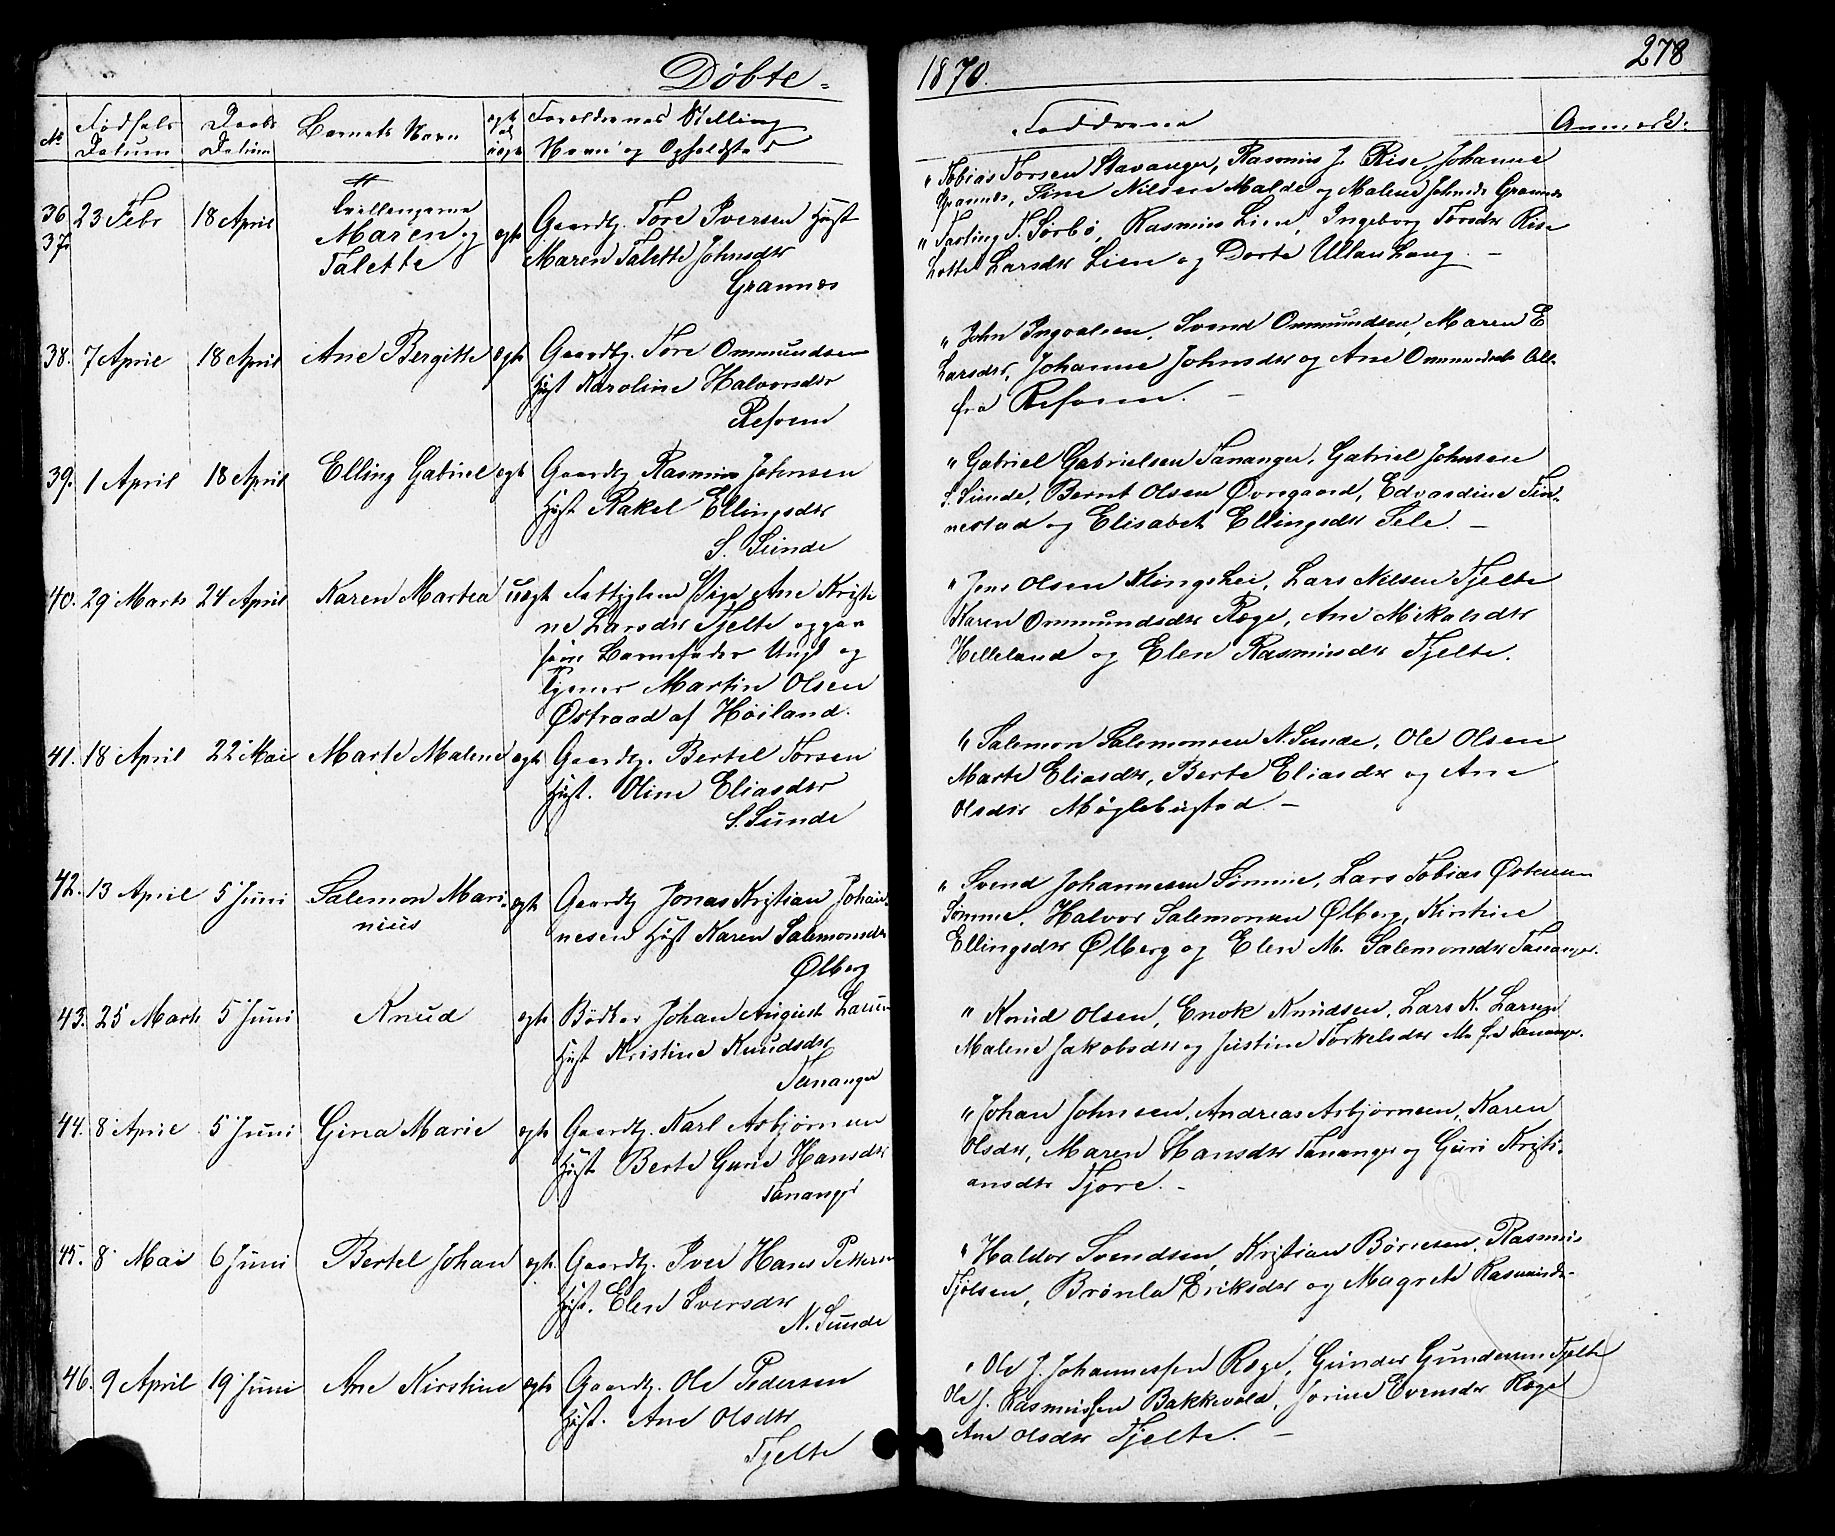 Døbte.
1870.
278
№
Fødsels Datum
Daabs Datum
Barnets Navn
egte el. uegte
Forældrenes Stilling
Navn og Opholdsted
Fadderne
Anmærk.
36
37
23 Febr
18 April
Tvillingerne
Maren og
Talette
egte
Gaardbr. Tore Iversen Hust
Maren Talette Johnsdtr
Grannes
" Tobias Torsen Stavanger, Rasmus J. Rise, Johanne
Grannes, Sine Nilsen Malde og Malene Johnsdr Grannes
" T. Sørbø, Rasmus Lien, Ingeborg Torsdtr Rise
Lotte Larsdtr Lien og Dorte Ullanhaug. —
38.
7 April
18 April
Ane Bergitte
egte
Gaardbr. Tore Ommundsen
Hust Karoline Halvorsdtr
Refsnen
" John Ingvalsen, Svend Ommundsen, Maren E
Larsdtr, Johanne Johnsdtr og Ane Ommundsdtr Alle
fra Refsnen. —
39.
1 April
18 April
Elling Gabriel
egte
Gaardbr Rasmus Johnsen
Hust Rakel Ellingsdtr
S. Sunde
" Gabriel Gabrielsen Tananger, Gabriel Johnsen
S. Sunde, Bernt Olsen Øvregaard, Edvardine Fin-
nestad og Elisabet Ellingsdtr Sele. —
40.
29 Marts
24 April
Karen Martea
uegte
Fattiglem Pige Ane Kristi
ne Larsdtr Tjelte opgav
som Barnefader Ungk og
Tjener Martin Olsen
Østraad af Høiland.
" Jens Olsen Klingshei, Lars Nilsen Tjelte
Karen Ommundsdtr Ræge, Ane Mikalsdtr
Helleland og Elen Rasmusdtr Tjelte.
41.
18 April
22 Mai
Marte Malene
egte
Gaardbr. Bertel Torsen
Hust. Oline Eliasdtr
S. Sunde
" Salemon Salemonsen N. Sunde, Ole Olsen
Marte Eliasdtr, Berte Eliasdtr og Ane
Olsdtr Møglebustad —
42.
13 April
5 Juni
Salemon Mari-
nius
egte
Gaardbr Jonas Kristian Johan-
nesen Hust Karen Salemonsdr
Ølberg
" Svend Johannesen Sømme, Lars Tobias Østensen
Sømme, Halvor Salemonsen Ølberg, Kirstine
Ellingsdtr Ølberg og Elen M. Salemonsdtr Tananger.
43.
25 Marts
5 Juni
Knud
egte
Bødker Johan August Larsen
Hust Kristine Knudsdtr
Tananger
" Knud Olsen, Enok Knudsen, Lars K. Larsen
Malene Jakobsdtr og Justine Torkelsdtr Alle fra Tananger.
44.
8 April
5 Juni
Gina Marie
egte
Gaardbr. Karl Asbjørnsen
Hust Berte Gurie Hansdtr
Tananger
" Johan Johnsen, Andreas Asbjørnsen, Karen
Olsdtr, Maren Hansdtr Tananger og Guri Kristi-
ansdtr Tjore. —
45.
8 Mai
6 Juni
Bertel Johan
egte
Gaardbr. Iver Hans Pettersen
Hust. Elen Iversdtr
N. Sunde
" Haldor Svendsen, Kristian Børresen, Rasmus
Tjølsen, Brønla Eriksdtr og Magrete Rasmusdr-
46.
9 April
19 Juni
Ane Kirstine
egte
Gaardbr. Ole Pedersen
Hust. Ane Olsdtr
Tjelte
" Ole J. Johannessen Ræge, Gunder Gundersen Tjelte
Ole J. Rasmussen Bakkevold, Jorine Evensdtr Ræge
Ane Olsdtr Tjelte. —